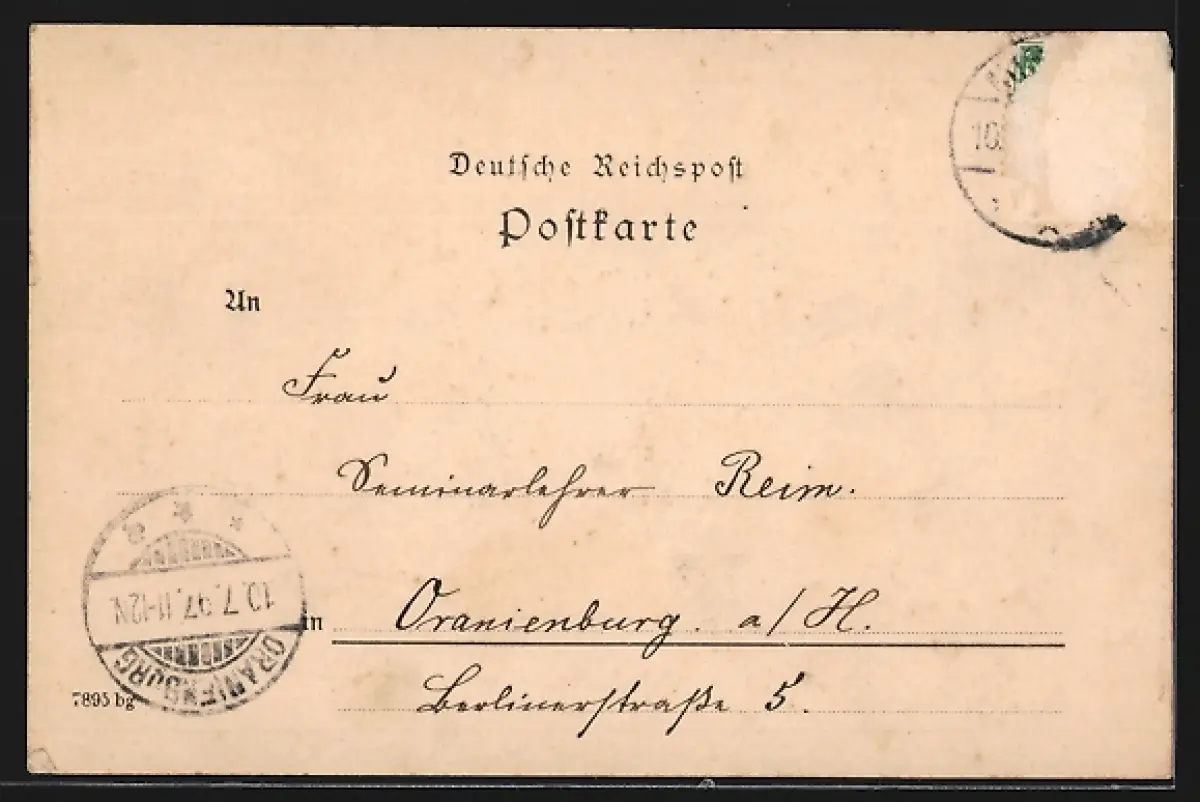 Deutsche Reichspost
Postkarte
An
Frau
Seminarlehrer Reim.
in Oranienburg. a/H.
Berlinerstraße 5.
ORANIENBURG
10.7.97.11-12N.
* *
7895 bg
10.